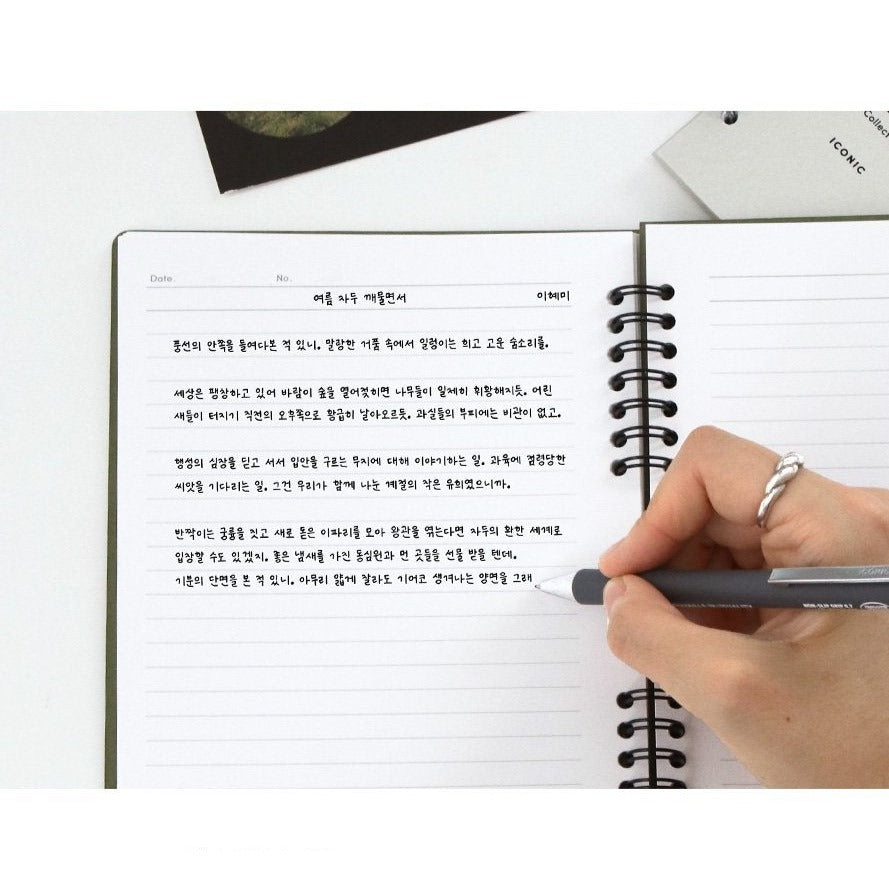 Collect
ICONIC
Date.
No.
여름 자두 깨물면서
이혜미
풍선의 안쪽을 들여다본 적 있니. 말랑한 거품 속에서 일렁이는 희고 고운 숨소리를.
세상은 팽창하고 있어 바람이 숲을 열어젖히면 나무들이 일제히 휘황해지듯. 어린
새들이 터지기 직전의 오후쪽으로 황급히 날아오르듯. 과실들의 부피에는 비관이 없고.
행성의 심장을 딛고 서서 입안을 구르는 무지에 대해 이야기하는 일. 과육에 점령당한
씨앗을 기다리는 일. 그건 우리가 함께 나눈 계절의 작은 유희였으니까.
반짝이는 궁륭을 짓고 새로 돋은 이파리를 모아 왕관을 엮는다면 자두의 환한 세계로
입장할 수도 있겠지. 좋은 냄새를 가진 동심원과 먼 곳들을 선물 받을 텐데.
기분의 단면을 본 적 있니. 아무리 얇게 잘라도 기어코 생겨나는 양면을 그래
NON-SLIP GRIP 0.7